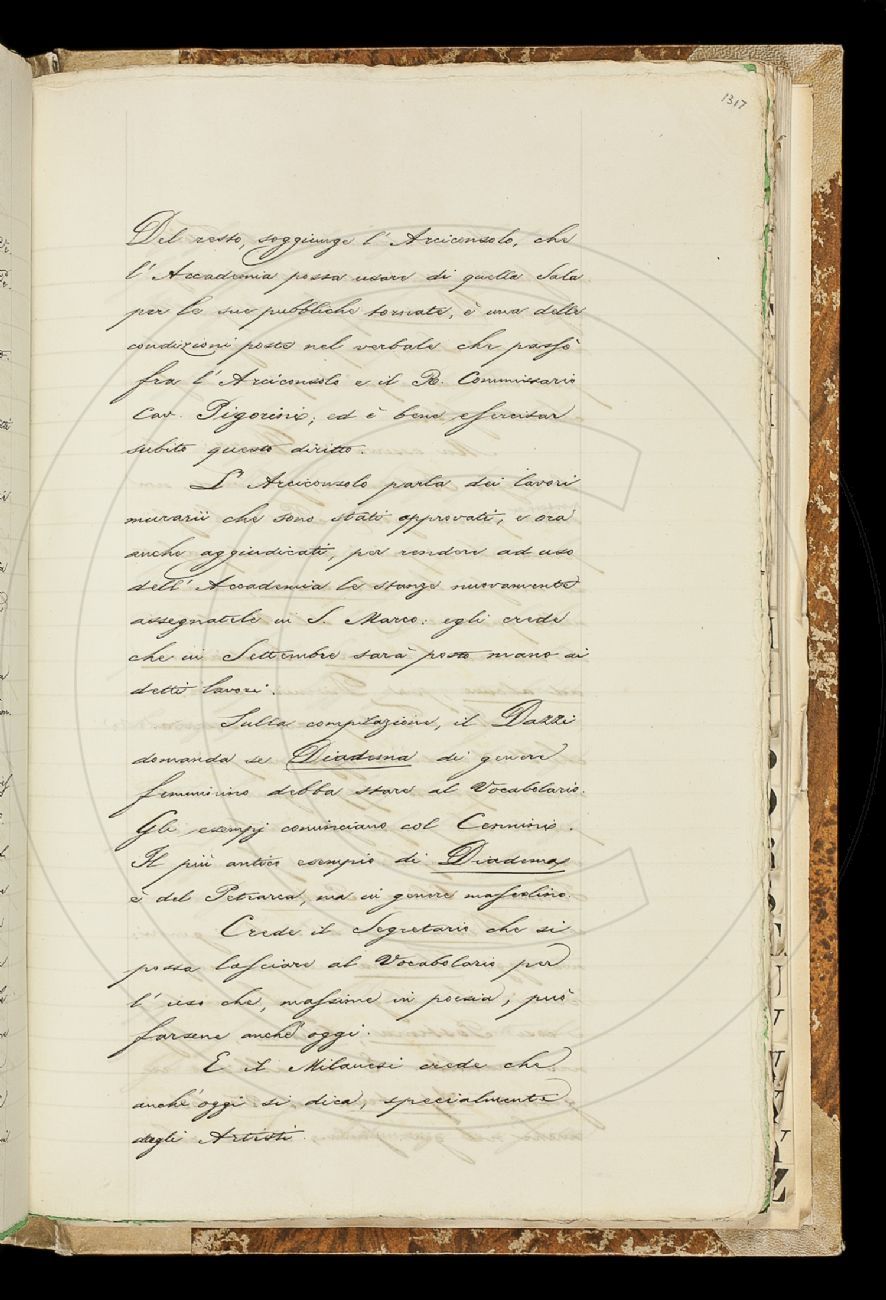 1317
Del resto, soggiunge l'Arciconsolo, che
l'Accademia possa usare di quella Sala
per le sue pubbliche tornate, è una delle
condizioni poste nel verbale che passò
fra l'Arciconsolo e il R. Commissario
Cav. Pigorini; ed è bene esercitar
subito questo diritto.
L'Arciconsolo parla dei lavori
murarii che sono stati approvati, e ora
anche aggiudicati, per rendere ad uso
dell'Accademia le stanze nuovamente
assegnatele in S. Marco: egli crede
che in Settembre sarà posto mano ai
detti lavori.
Sulla compilazione, il Dazzi
domanda se Diadema di genere
femminino debba stare al Vocabolario.
Gli esempj cominciano col Cennini.
Il più antico esempio di Diadema
è del Petrarca, ma in genere mascolino.
Crede il Segretario che si
possa lasciare al Vocabolario per
l'uso che, massime in poesia, può
farsene anch'oggi.
E il Milanesi crede che
anch'oggi si dica, specialmente
dagli Artisti.